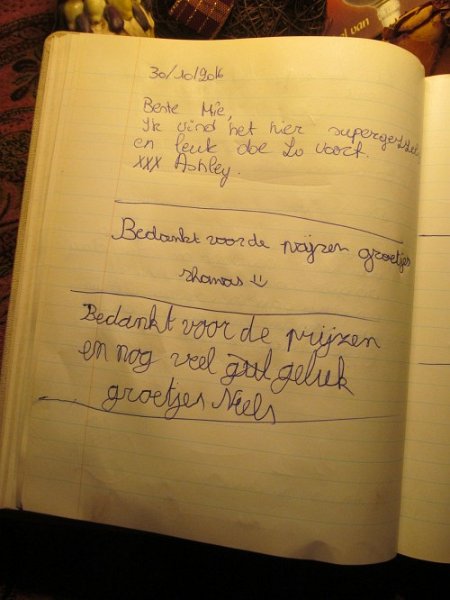 al van
30/10/2016
Beste Mie,
Ik vind het hier supergezellig
en leuk doe zo voort.
xxx Ashley.
Bedankt voor de prijzen groetjes
Bedankt voor de prijzen
en nog veel geluk
groetjes Niels